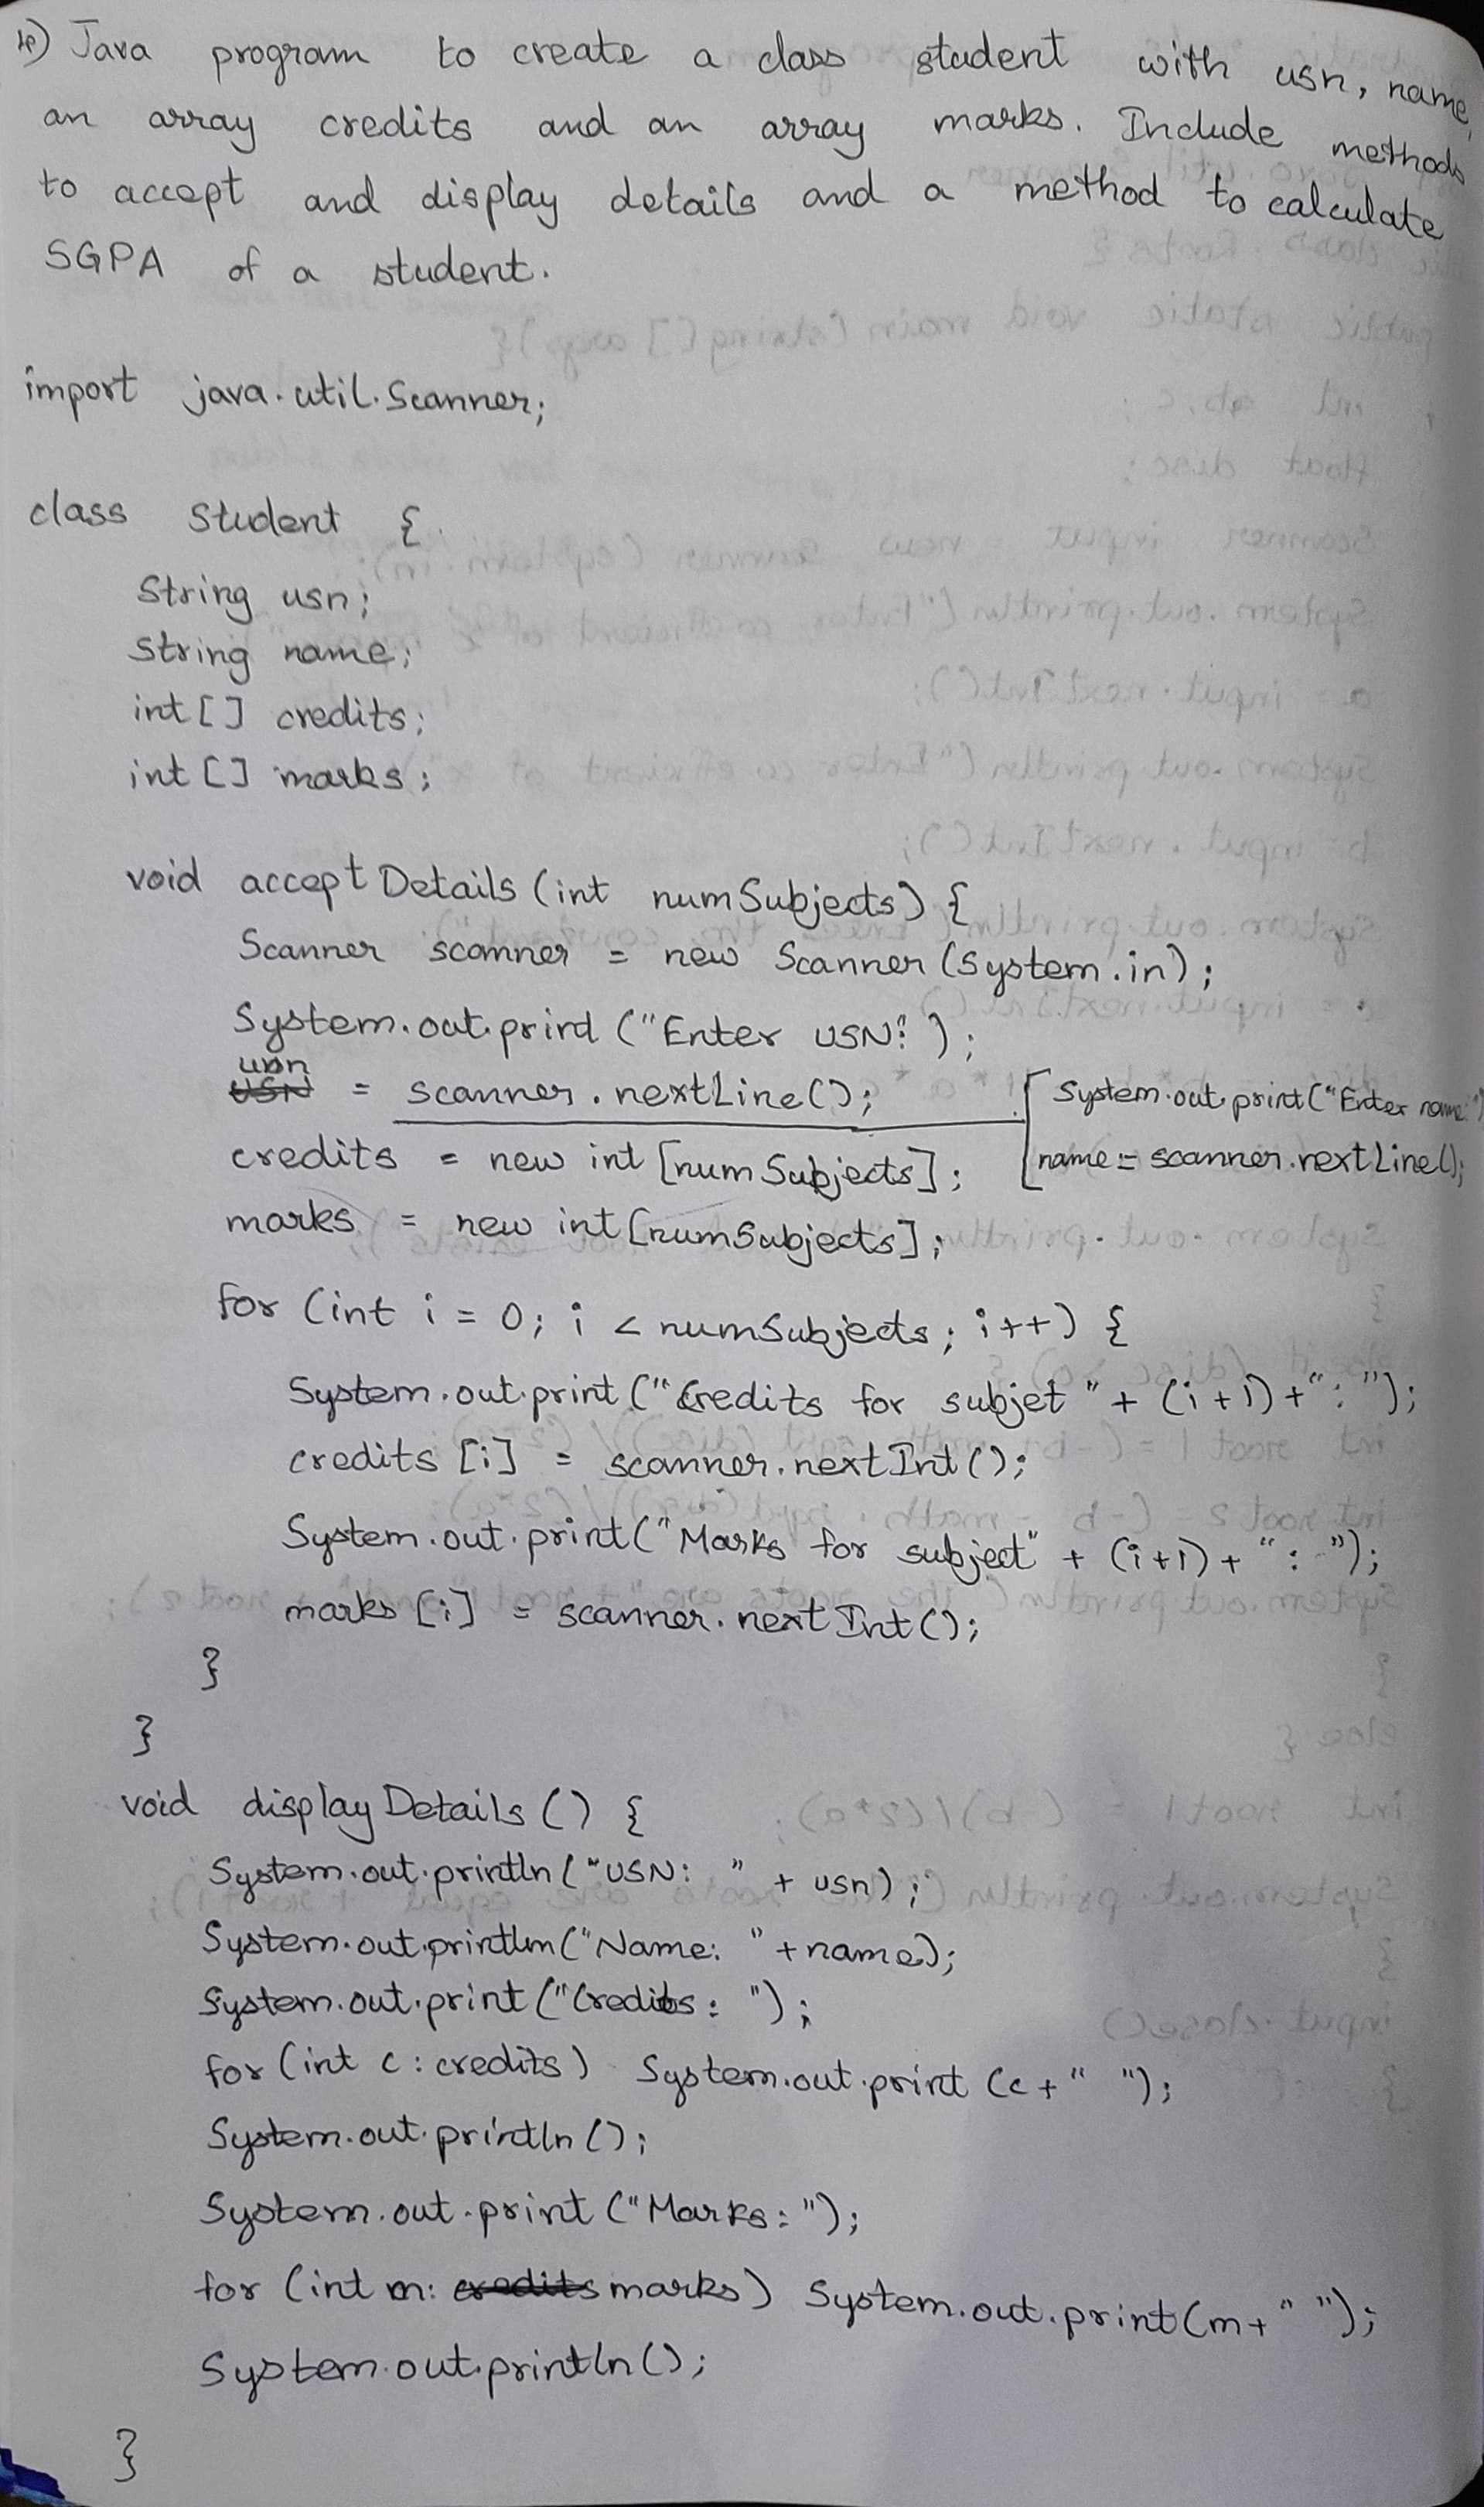 4) Java program to create a class student with usn, name,
an array credits and an array marks. Include methods
to accept and display details and a method to calculate
SGPA of a student.
import java.util.Scanner;
class Student {
String usn;
String name;
int [] credits;
int [] marks;
void acceptDetails (int numSubjects) {
Scanner scanner = new Scanner (System.in);
System.out.print ("Enter USN:");
usn = scanner.nextLine();
System.out.print("Enter name:")
name = scanner.nextLine();
credits = new int [numSubjects];
marks = new int [numSubjects];
for (int i = 0; i < numSubjects; i++) {
System.out.print ("Credits for subjet " + (i+1) + ": ");
credits [i] = scanner.nextInt();
System.out.print("Marks for subject" + (i+1) + ": ");
marks [i] = scanner.nextInt();
}
}
void displayDetails () {
System.out.println ("USN: " + usn);
System.out.println("Name: " + name);
System.out.print ("Credits: ");
for (int c : credits) System.out.print (c + " ");
System.out.println ();
System.out.print ("Marks: ");
for (int m: marks) System.out.print(m + " ");
System.out.println ();
}